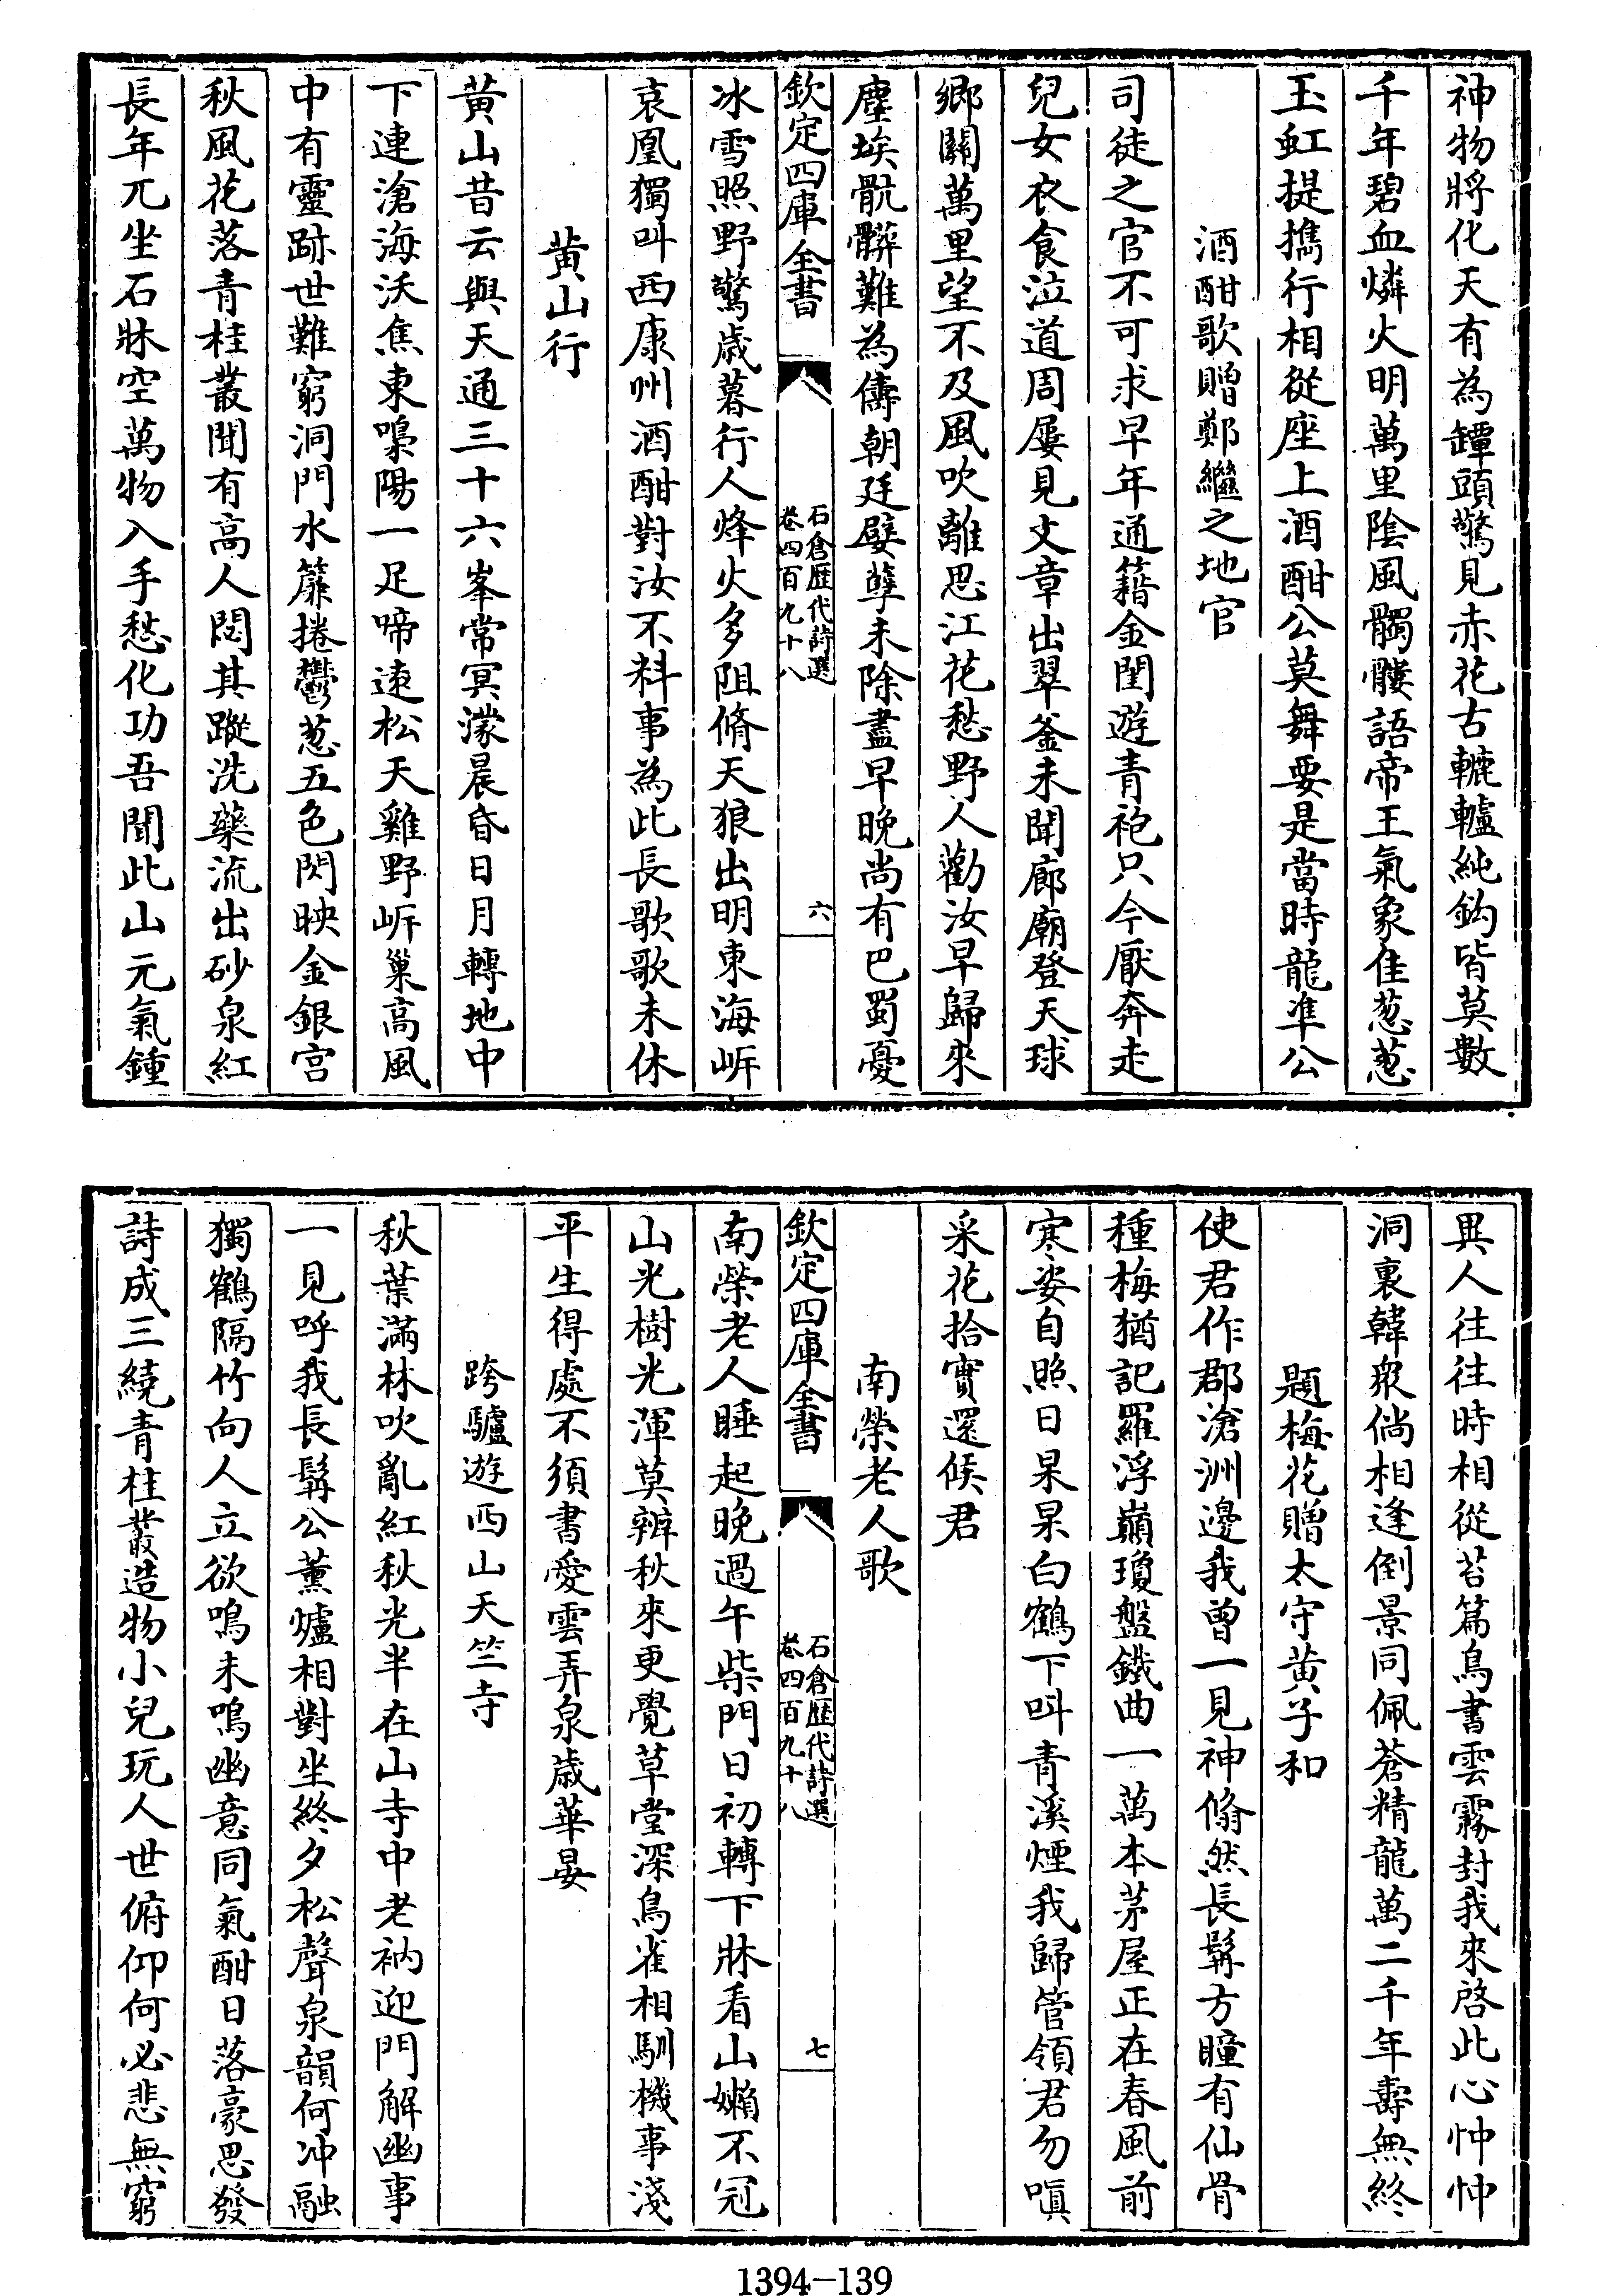 神物將化天有為罈頭驚見赤花古轆轤純鈎皆莫數
千年碧血燐火明萬里陰風髑髏語帝王氣象佳葱葱
玉虹提攜行相從座上酒酣公莫舞要是當時龍準公
酒酣歌贈鄭繼之地官
司徒之官不可求早年通籍金閨遊青袍只今厭奔走
兒女衣食泣道周屢見文章出翠釜未聞廊廟登天球
鄉關萬里望不及風吹離思江花愁野人勸汝早歸來
塵埃骯髒難為儔朝廷嬖孽未除盡早晚尚有巴蜀憂
欽定四庫全書
石倉歷代詩選
卷四百九十八
六
冰雪照野驚歲暮行人烽火多阻脩天狼出明東海㟁
哀凰獨叫西康州酒酣對汝不料事為此長歌歌未休
黃山行
黃山昔云與天通三十六峯常冥濛晨昏日月轉地中
下連滄海沃焦東嘷陽一足啼遠松天雞野㟁巢高風
中有靈跡世難窮洞門水簾捲鬱葱五色閃映金銀宮
秋風花落青桂叢聞有高人悶其蹤洗藥流出砂泉紅
長年兀坐石牀空萬物入手愁化功吾聞此山元氣鍾
異人往往時相從苔篇鳥書雲霧封我來啓此心忡忡
洞裏韓衆倘相逢倒景同佩蒼精龍萬二千年壽無終
題梅花贈太守黃子和
使君作郡滄洲邊我曾一見神翛然長髯方瞳有仙骨
種梅猶記羅浮巔瓊盤鐵曲一萬本茅屋正在春風前
寒姿自照日杲杲白鶴下叫青溪煙我歸管領君勿嗔
采花拾實還候君
南榮老人歌
欽定四庫全書
石倉歷代詩選
卷四百九十八
七
南榮老人睡起晚過午柴門日初轉下牀看山嬾不冠
山光樹光渾莫辨秋來更覺草堂深鳥雀相馴機事淺
平生得處不須書愛雲弄泉歲華晏
跨驢遊西山天竺寺
秋葉滿林吹亂紅秋光半在山寺中老衲迎門解幽事
一見呼我長髯公薰爐相對坐終夕松聲泉韻何冲融
獨鶴隔竹向人立欲鳴未鳴幽意同氣酣日落豪思發
詩成三繞青桂叢造物小兒玩人世俯仰何必悲無窮
1394—139